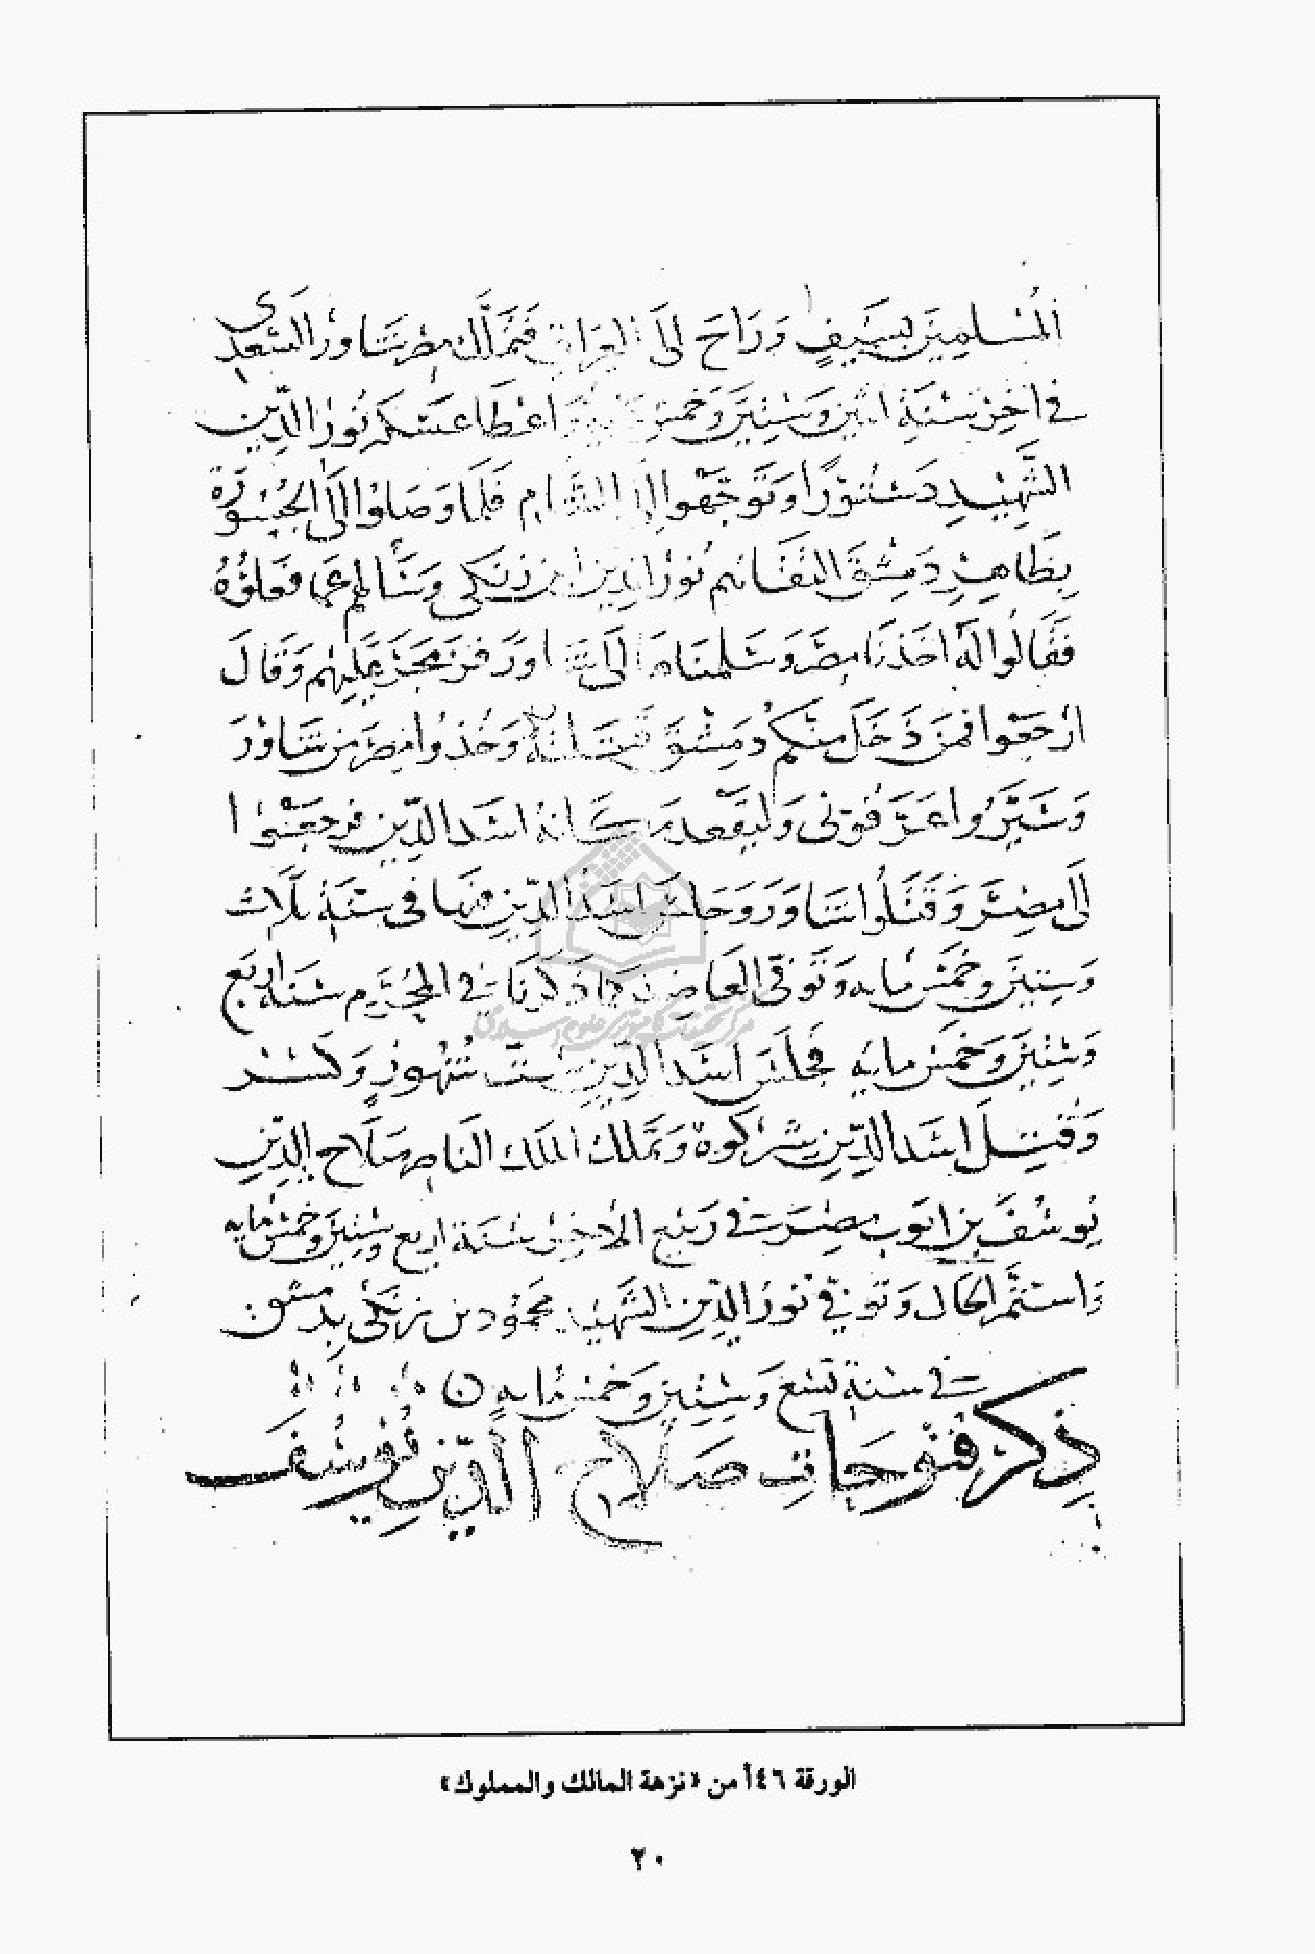 المسلمين بسيف وراح الى العراق فتملك مصر شاور السعدى
في اخر سنة اثنين وستين وخمس اعطا عسكر نور الدين
الشهيد دستورًا وتوجهوا الى الشام فلما وصلوا الى الجسورة
بظاهر دمشق التقاهم نور الدين بن زنكى وسألهم عما فعلوه
فقالوا له اخذنا مصر وسلمناها الى شاور فزمجر عليهم وقال
ارجعوا فمن دخل منكم دمشق وخذوا مصر من شاور
وسيروا وليقعد مكانه اسد الدين فرجعوا
الى مصر وقتلوا شاور وجلس اسد الدين فيها في سنة ثلاث
وستين وخمس مايه وتوفى العاضد كما ذكرنا في المحرم سنة اربع
وستين وخمس مايه فجلس اسد الدين ست شهور وكسر
وقتل اسد الدين شركوه وتملك الملك الناصر صلاح الدين
يوسف بن ايوب مصر في ربيع الاخر سنة اربع وستين وخمس مايه
واستتم الحال وتوفي نور الدين الشهيد محمود بن زنكى بدمشق
في سنة تسع وستين وخمس مايه ن
ذكر فتوحات صلاح الدين يوسف
الورقة ٤٦أ من «نزهة المالك والمملوك»
٢٠